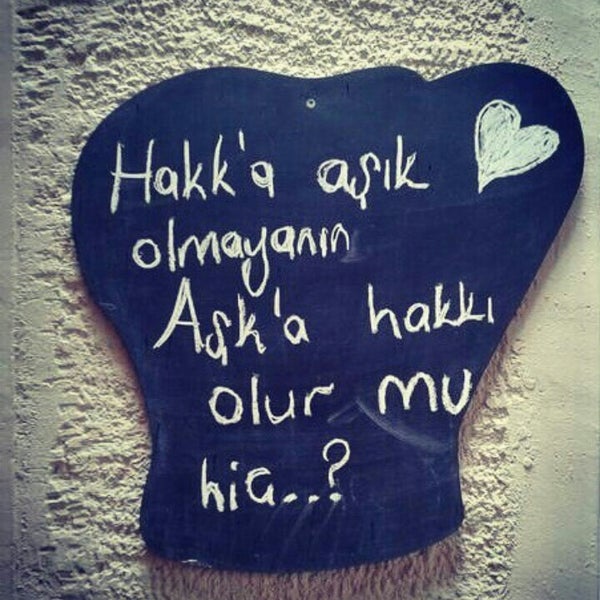 Hakk'a aşık
olmayanın
Aşk'a hakkı
olur mu
hiç..?